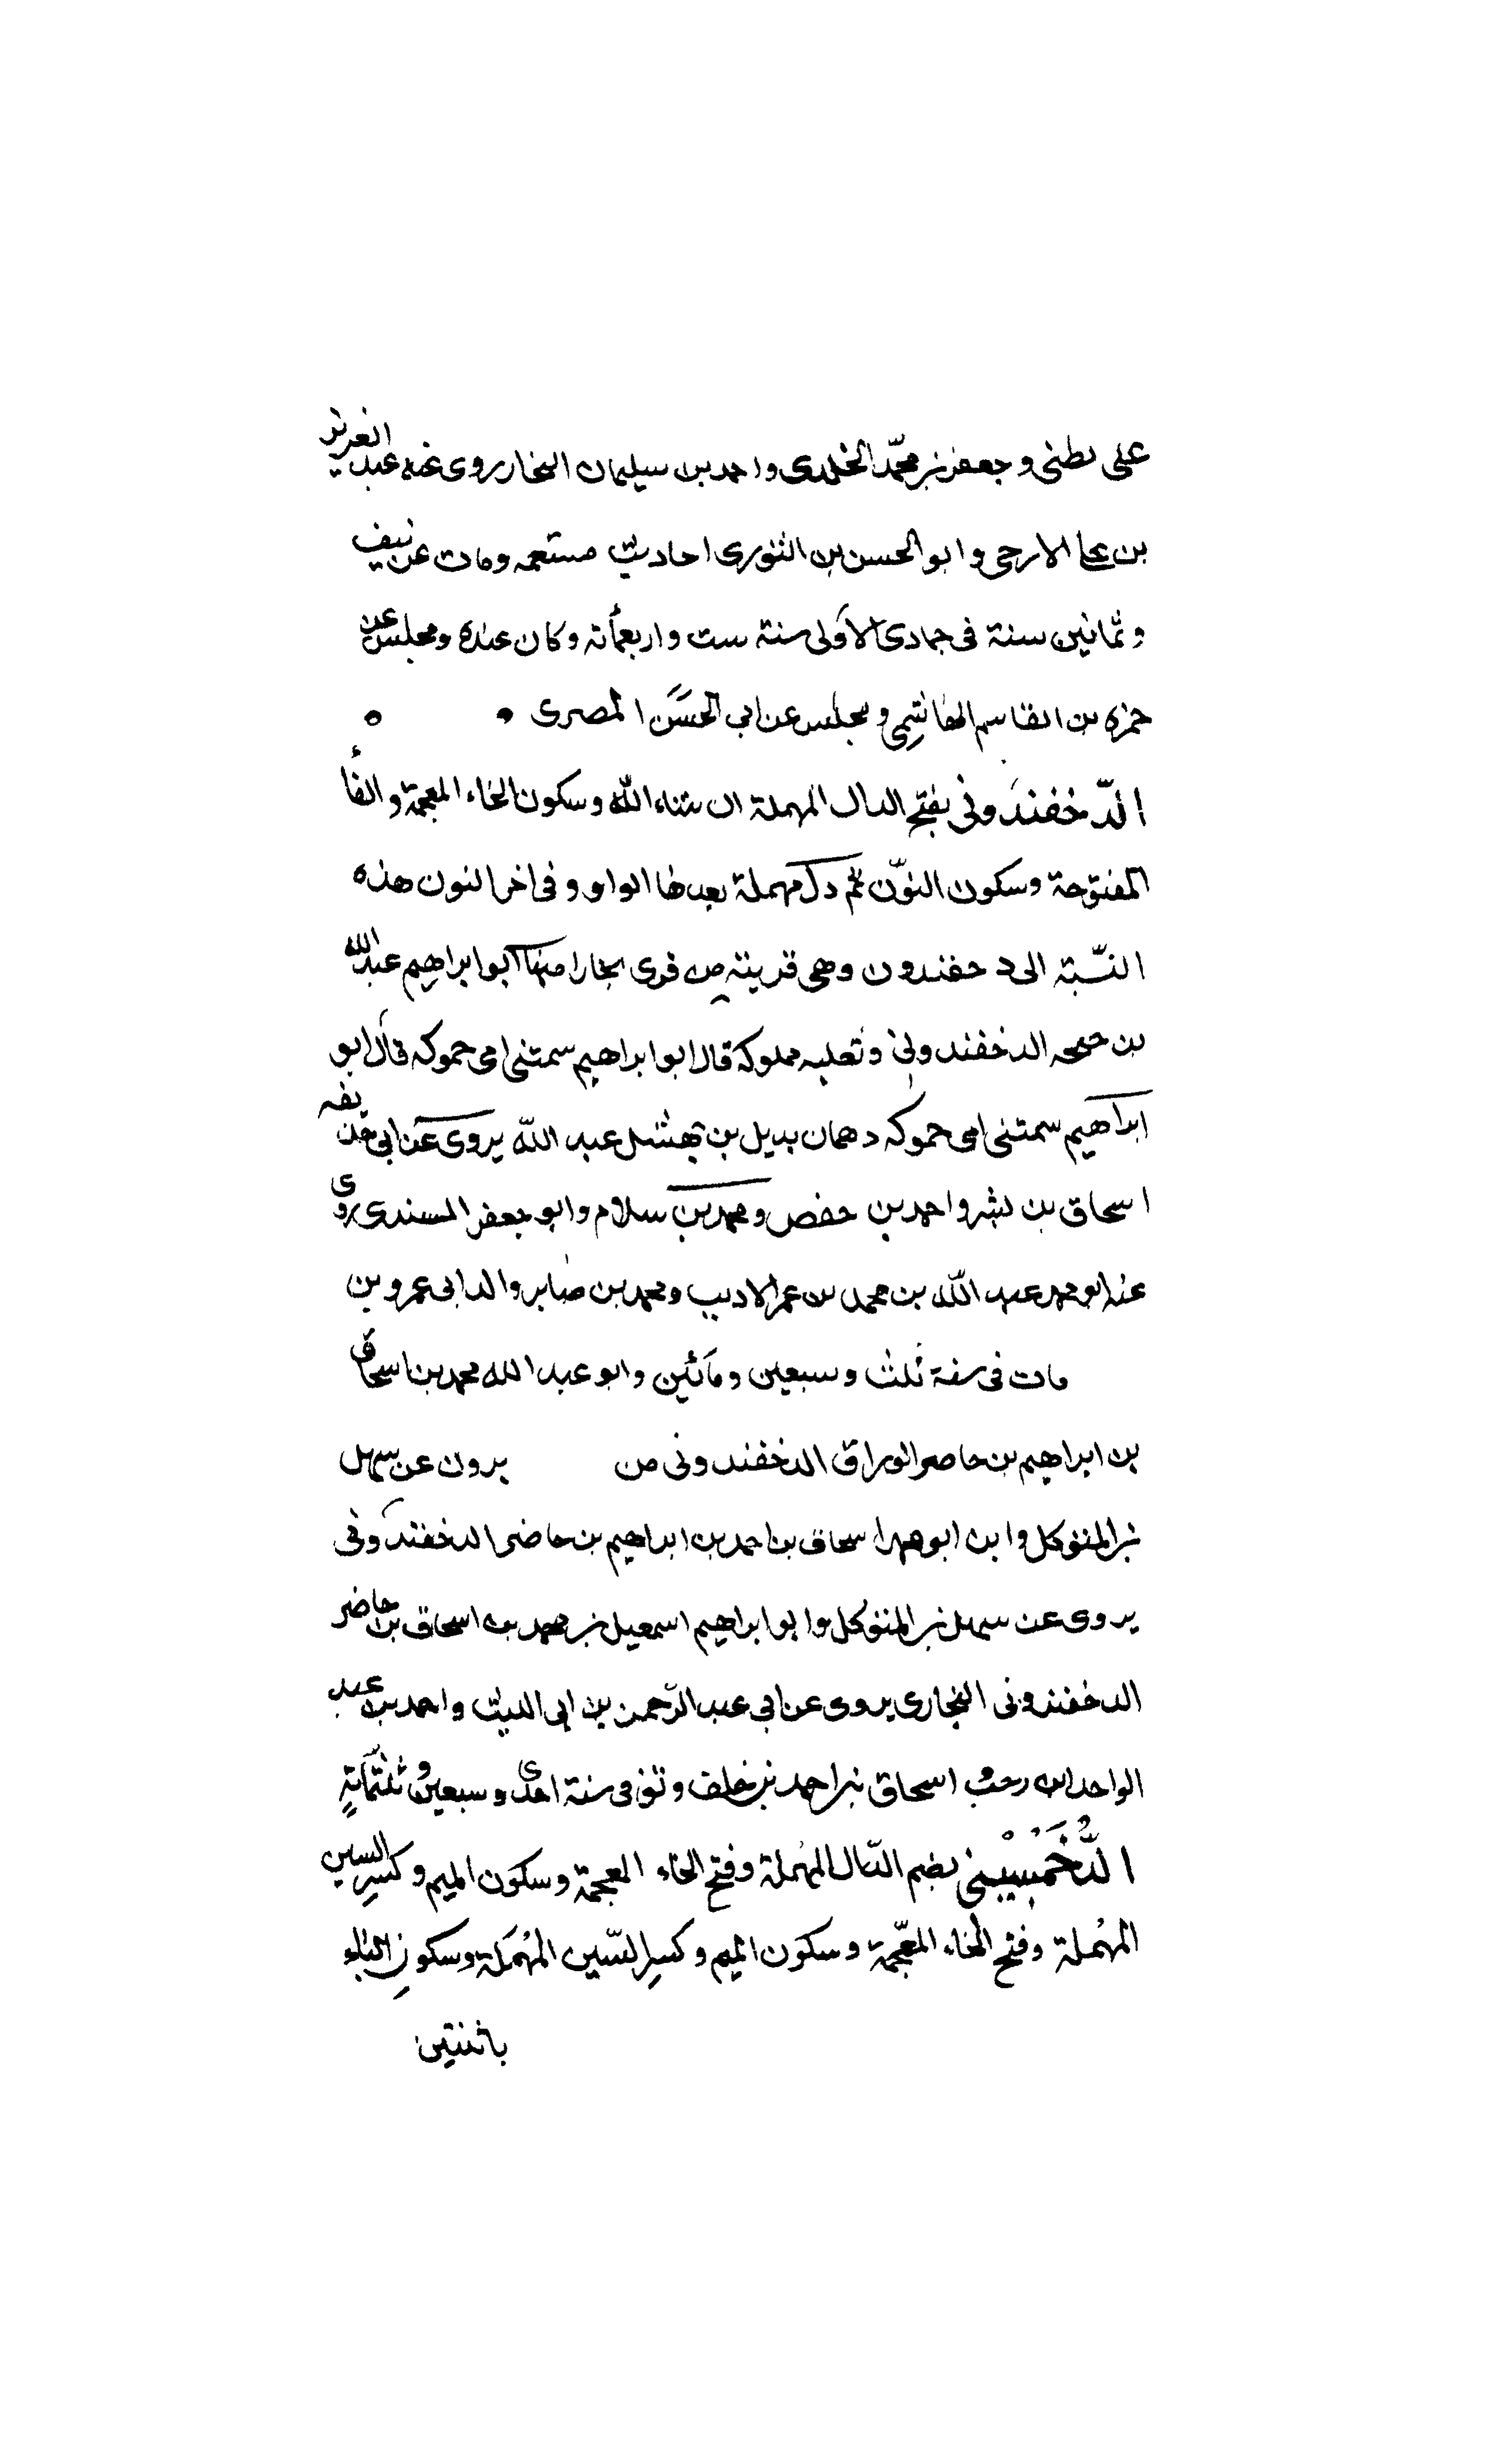 على بطنى وجعفر بن محمّد الخلدى واحمد بن سليمان النجار روى عنه عبد العزيز
بن على الارجى وابو الحسن بن التنورى احاديث مستقيمه ومات عن نيف
وثمانين سنة فى جمادى الاولى سنة ست واربعمأته وكان عنده ومجلس عن
حمزه بن القاسم الهاشمى ومجلس عن ابى الحسن المصرى
الدّخفندونى بفتح الدال المهملة ان شاء الله وسكون الخاء المعجمة والفأ
المفتوحة وسكون النوّن ثم دال مهملة بعدها الواو وفى اخر النون هذه
النسّبة الى دخفندون وهى قرية من قرى بخارا منها ابو ابراهيم عبد الله
بن الدخفندونى وثعلبه مملوكه قال ابو ابراهيم سمتنى امى حموكه قال ابو
ابراهيم سمتنى امى حموكه دهمان بديل بن بهشل عبد الله يروى عن ابى حذيفه
اسحاق بن بشر واحمد بن حفص ومحمد بن سلام وابو جعفر المسندى روى
عنه ابو محمد عبد الله بن محمد بن عمر الاديب ومحمد بن صابر والد ابى عمرو بن
مات فى سنة ثلث وسبعين ومأتين وابو عبد الله محمد بن اسحاق
بن ابراهيم بن حاصر الوراق الدخفندونى من يرون عن سهل
بن المتوكل وابن ابو اسحاق بن احمد بن ابراهيم بن حاضر الدخفندونى
يروى عن سهل بن المتوكل وابو ابراهيم اسمعيل بن محمد بن اسحاق بن حاضر
الدخفندونى البخارى يروى عن ابى عبد الرّحمن بن ابى الليث واحمد بن عبد
الواحد ابن اسحاق بن احمد بن خلف وتوفى فى سنة احدى وسبعين وثلثمأية
الدُّخَمْسِيْنى بضم الدّال المهملة وفتح الخاء المعجمة وسكون الميم وكسر السين
المهملة وفتح الخاء المعّجمة وسكون الميم وكسر السّين المهُملة وسكون الياء
باثنتين